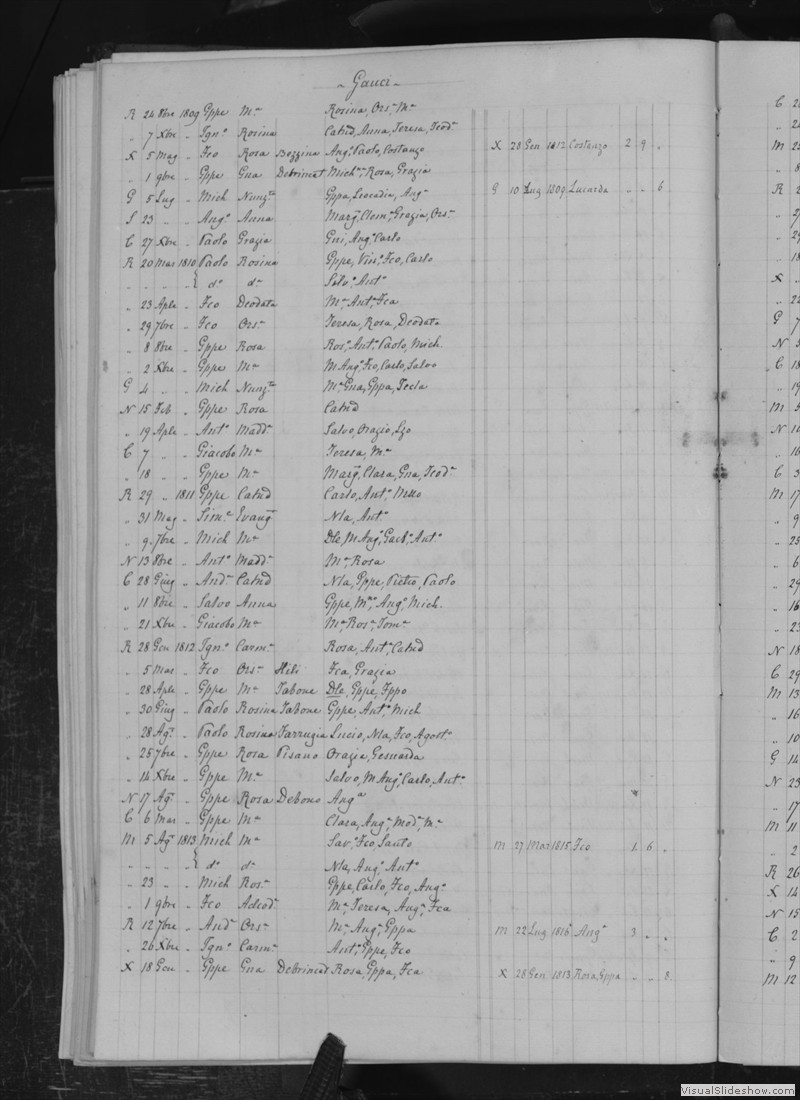 Gauci
R 24 8bre 1809 Gppe Mª Rosina, Orsª Mª
" 7 Xbre " Ignº Rosina Catnd, Anna, Teresa, Teodª
X 5 Mag " Fco Rosa Bezzina Angº Paolo, Costanzo X 28 Gen 1812 Costanzo 2 9 "
" 1 9bre " Gppe Gna Debrincat Michª Rosa, Grazia
G 5 Lug " Mich Nunzta Gppa, Leocadia, Angª G 10 Lug 1809 Lucarda " " 6
S 23 " " Angº Anna Margª Clemª Grazia, Orsª
C 27 Xbre " Paolo Grazia Gni, Angº Carlo
R 20 Mar 1810 Paolo Rosina Gppe, Vinº Fco, Carlo
" " " " dº dª Salvº Antº
" 23 Aple " Fco Deodata Mª Antª Fca
" 29 7bre " Fco Orsª Teresa, Rosa, Deodata
" 8 8bre " Gppe Rosa Rosª Antº Paolo, Mich
" 2 Xbre " Gppe Mª M Angº Fco, Carlo, Salvo
G 4 " " Mich Nunzta Mª Gna, Gppa, Tecla
N 15 Feb " Gppe Rosa Catnd
" 19 Aple " Antº Maddª Salvo, Orazio, Lzo
C 7 " " Giacobo Mª Teresa, Mª
" 18 " " Gppe Mª Margª Clara, Gna, Teodª
R 29 " 1811 Gppe Catnd Carlo, Antº
" 31 Mag " Simª Evangta Nla, Antº
" 9 7bre " Mich Mª Dle, M Angº Gacbº Antº
N 13 8bre " Antº Maddª Mª Rosa
C 28 Giug " Andª Catnd Nla, Gppe, Pietro, Paolo
" 11 8bre " Salvo Anna Gppe, Mnº Angº Mich.
" 21 Xbre " Giacobo Mª Mª Rosª Tomª
R 28 Gen 1812 Ignº Carmª Rosa, Antª Catnd
" 5 Mar " Fco Orsª Hili Fca, Grazia
" 28 Aple " Gppe Mª Tabone Dle, Gppe, Fppo
" 30 Giug " Paolo Rosina Tabone Gppe, Antº Mich
" 28 Agº " Paolo Rosina Farrugia Lucio, Nla, Fco, Agostº
" 25 7bre " Gppe Rosa Pisano Orazia, Gesuarda
" 14 Xbre " Gppe Mª Salvo, M Angº Carlo, Antº
N 17 Agº " Gppe Rosa Debono Angª
C 6 Mar " Gppe Mª Clara, Angª Modª Mª
M 5 Agº 1813 Mich Mª Savº Fco, Santo M 27 Mar 1815 Fco 1 6 "
" " " " dº dª Nla, Angº Antº
" 23 " " Mich Rosª Gppe, Carlo, Fco, Angº
" 1 9bre " Fco Adeodª Mª Teresa, Angª Fca
R 12 7bre " Andª Orsª Mª Angª Gppa M 22 Lug 1816 Angª 3 " "
" 26 Xbre " Ignº Carmª Antº Gppe, Fco
X 18 Gen " Gppe Gna Debrincat Rosa, Gppa, Fca X 28 Gen 1813 Rosa, Gppa " " 8
VisualSlideshow.com